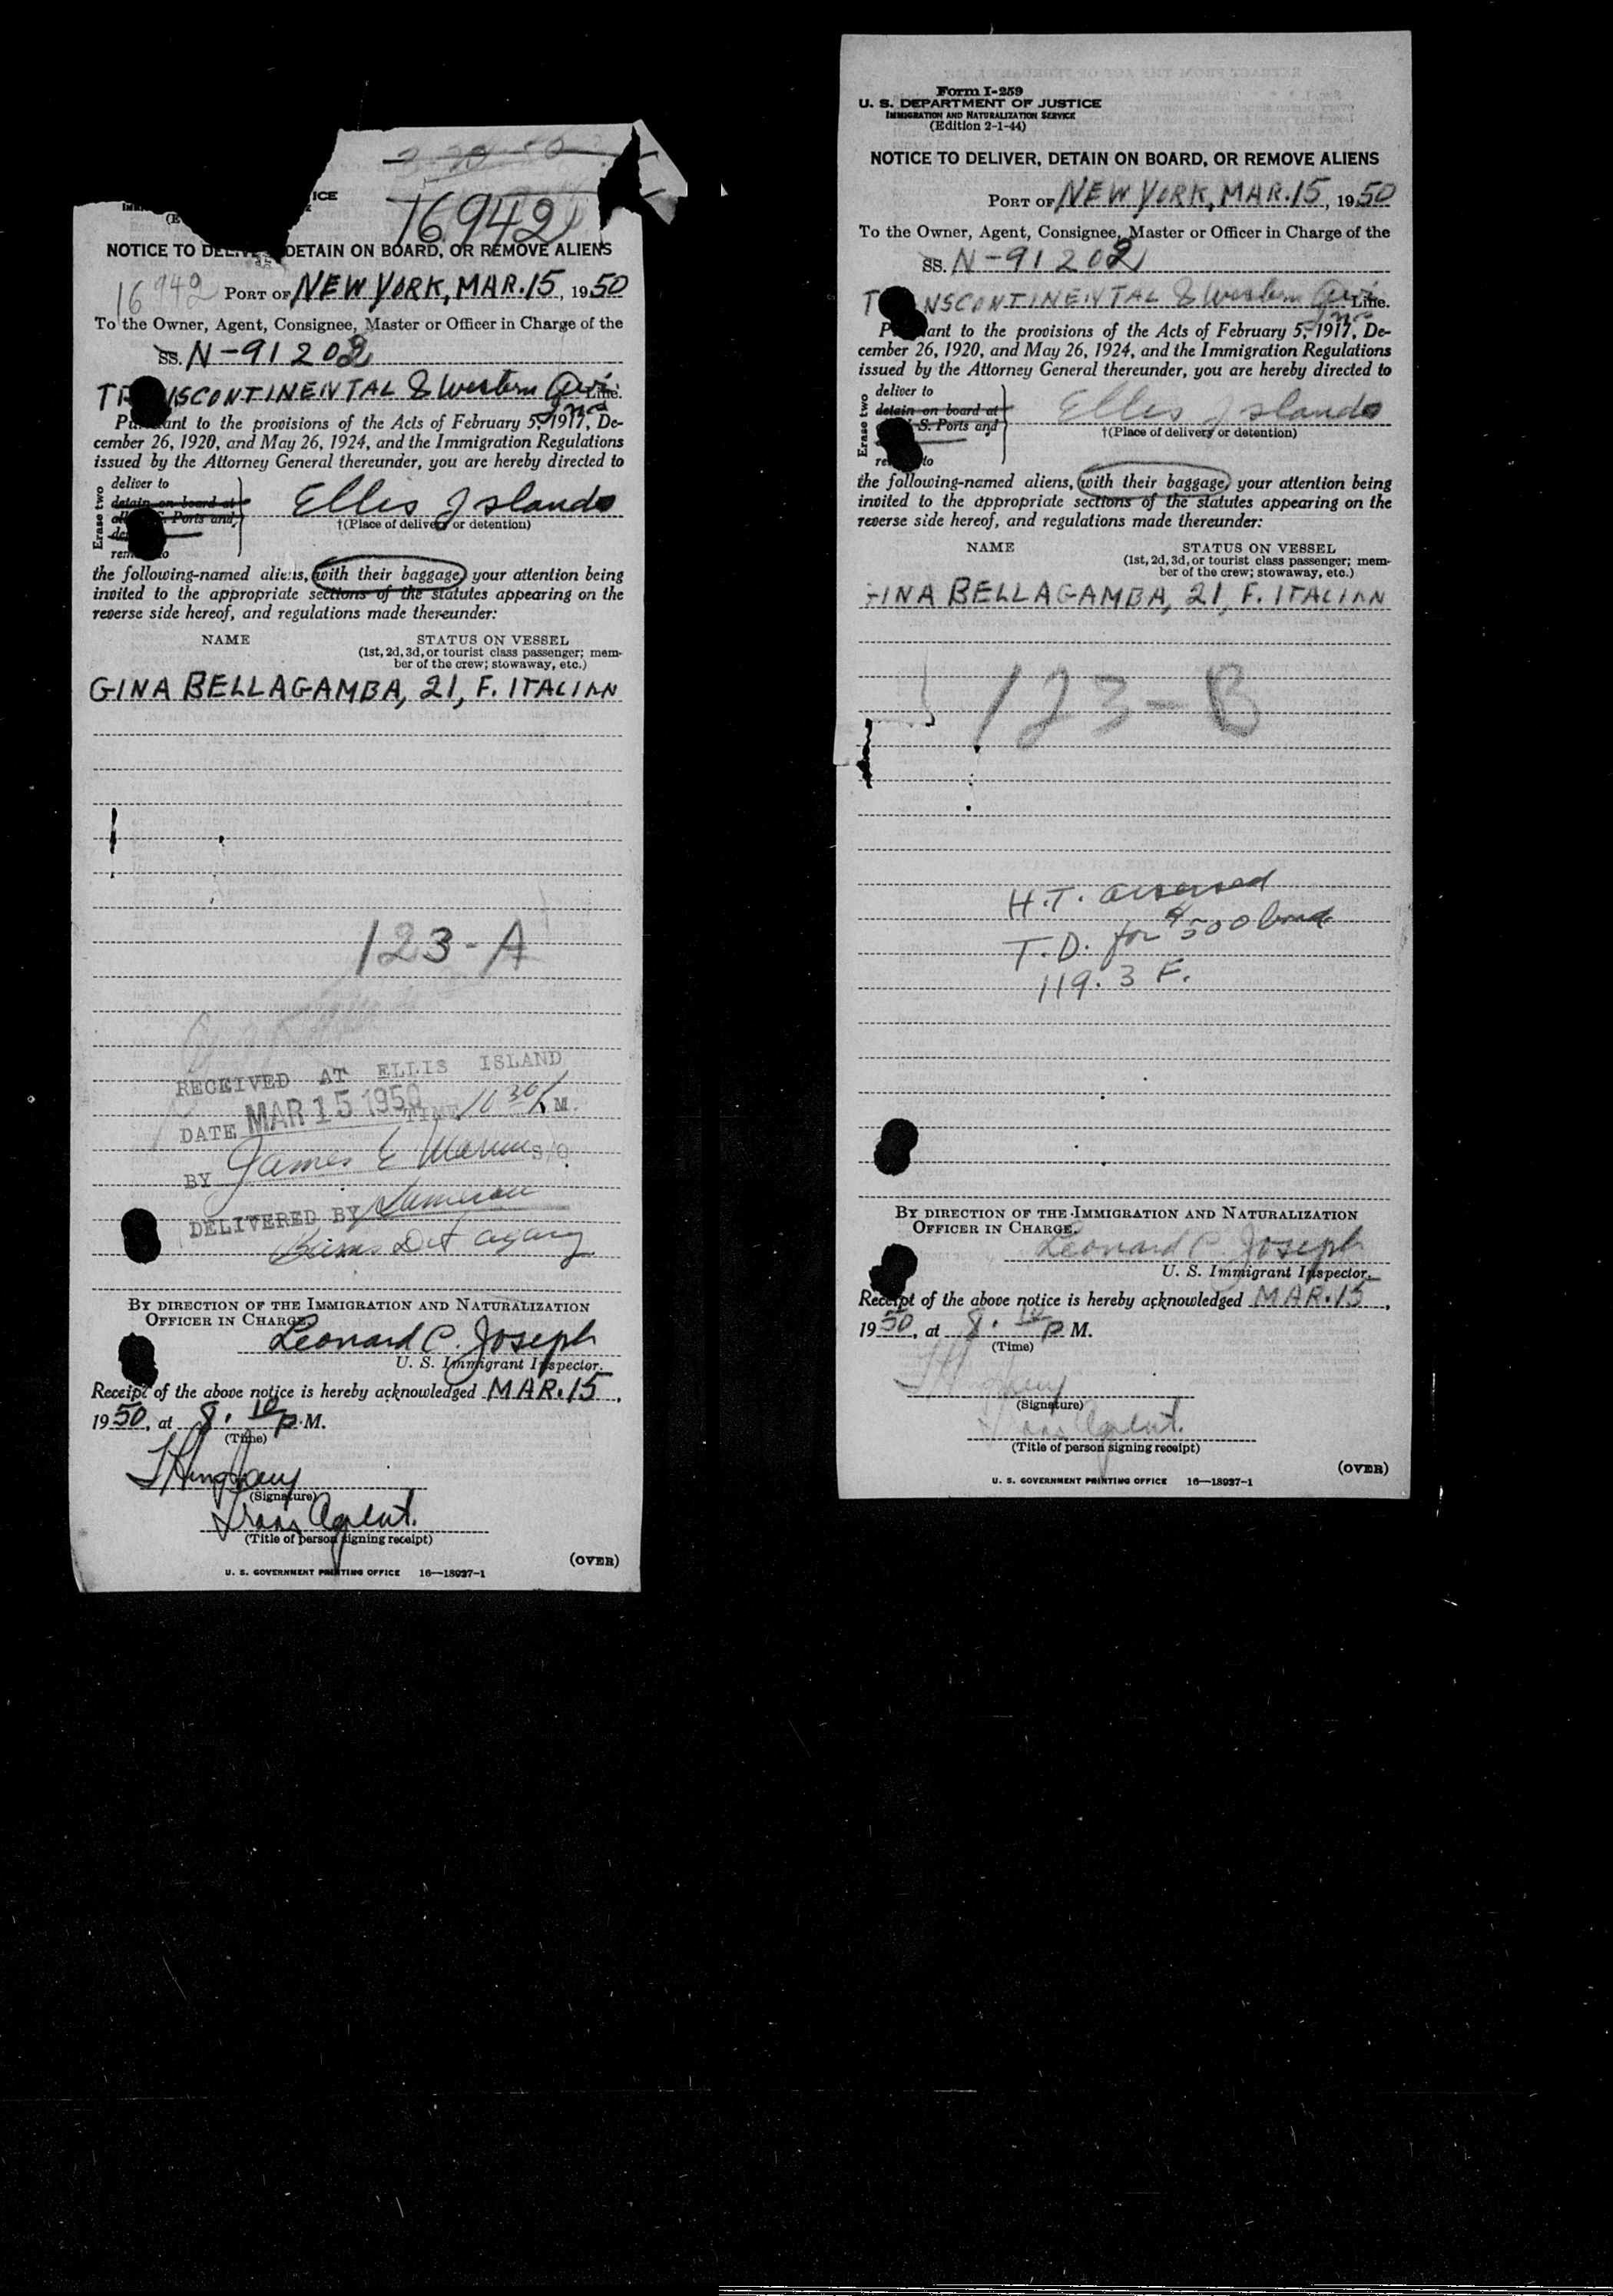 ICE
16942
NOTICE TO DELIVER, DETAIN ON BOARD, OR REMOVE ALIENS
16942
PORT OF NEW YORK, MAR. 15, 1950
To the Owner, Agent, Consignee, Master or Officer in Charge of the
SS. N-91202
TRANSCONTINENTAL & Western Air Line.
Inc
Pursuant to the provisions of the Acts of February 5, 1917, De-
cember 26, 1920, and May 26, 1924, and the Immigration Regulations
issued by the Attorney General thereunder, you are hereby directed to
Erase two
deliver to
detain on board at
Ports and
Ellis Island
†(Place of delivery or detention)
the following-named aliens, with their baggage, your attention being
invited to the appropriate sections of the statutes appearing on the
reverse side hereof, and regulations made thereunder:
NAME STATUS ON VESSEL
(1st, 2d, 3d, or tourist class passenger; mem-
ber of the crew; stowaway, etc.)
GINA BELLAGAMBA, 21, F. ITALIAN
123-A
RECEIVED AT ELLIS ISLAND
DATE MAR 15 1950 TIME 10 30 M.
BY James E S/O
DELIVERED BY
Burns Det agency
BY DIRECTION OF THE IMMIGRATION AND NATURALIZATION
OFFICER IN CHARGE.
Leonard C. Joseph
U. S. Immigrant Inspector.
Receipt of the above notice is hereby acknowledged MAR. 15,
1950, at 8.10 P. M.
(Time)
(Signature)
Agent.
(Title of person signing receipt)
(OVER)
U. S. GOVERNMENT PRINTING OFFICE 16—18937-1
Form I-259
U. S. DEPARTMENT OF JUSTICE
IMMIGRATION AND NATURALIZATION SERVICE
(Edition 2-1-44)
NOTICE TO DELIVER, DETAIN ON BOARD, OR REMOVE ALIENS
PORT OF NEW YORK, MAR. 15, 1950
To the Owner, Agent, Consignee, Master or Officer in Charge of the
SS. N-91202
TRANSCONTINENTAL & Western Air Line.
Inc
Pursuant to the provisions of the Acts of February 5, 1917, De-
cember 26, 1920, and May 26, 1924, and the Immigration Regulations
issued by the Attorney General thereunder, you are hereby directed to
Erase two
deliver to
detain on board at
S. Ports and
Ellis Island
†(Place of delivery or detention)
the following-named aliens, with their baggage, your attention being
invited to the appropriate sections of the statutes appearing on the
reverse side hereof, and regulations made thereunder:
NAME STATUS ON VESSEL
(1st, 2d, 3d, or tourist class passenger; mem-
ber of the crew; stowaway, etc.)
GINA BELLAGAMBA, 21, F. ITALIAN
123-B
H.T. assessed
T.D. for $500 bond
119.3 F.
BY DIRECTION OF THE IMMIGRATION AND NATURALIZATION
OFFICER IN CHARGE.
Leonard C. Joseph
U. S. Immigrant Inspector.
Receipt of the above notice is hereby acknowledged MAR. 15,
1950, at 8.10 P M.
(Time)
(Signature)
Agent.
(Title of person signing receipt)
(OVER)
U. S. GOVERNMENT PRINTING OFFICE 16—18937-1